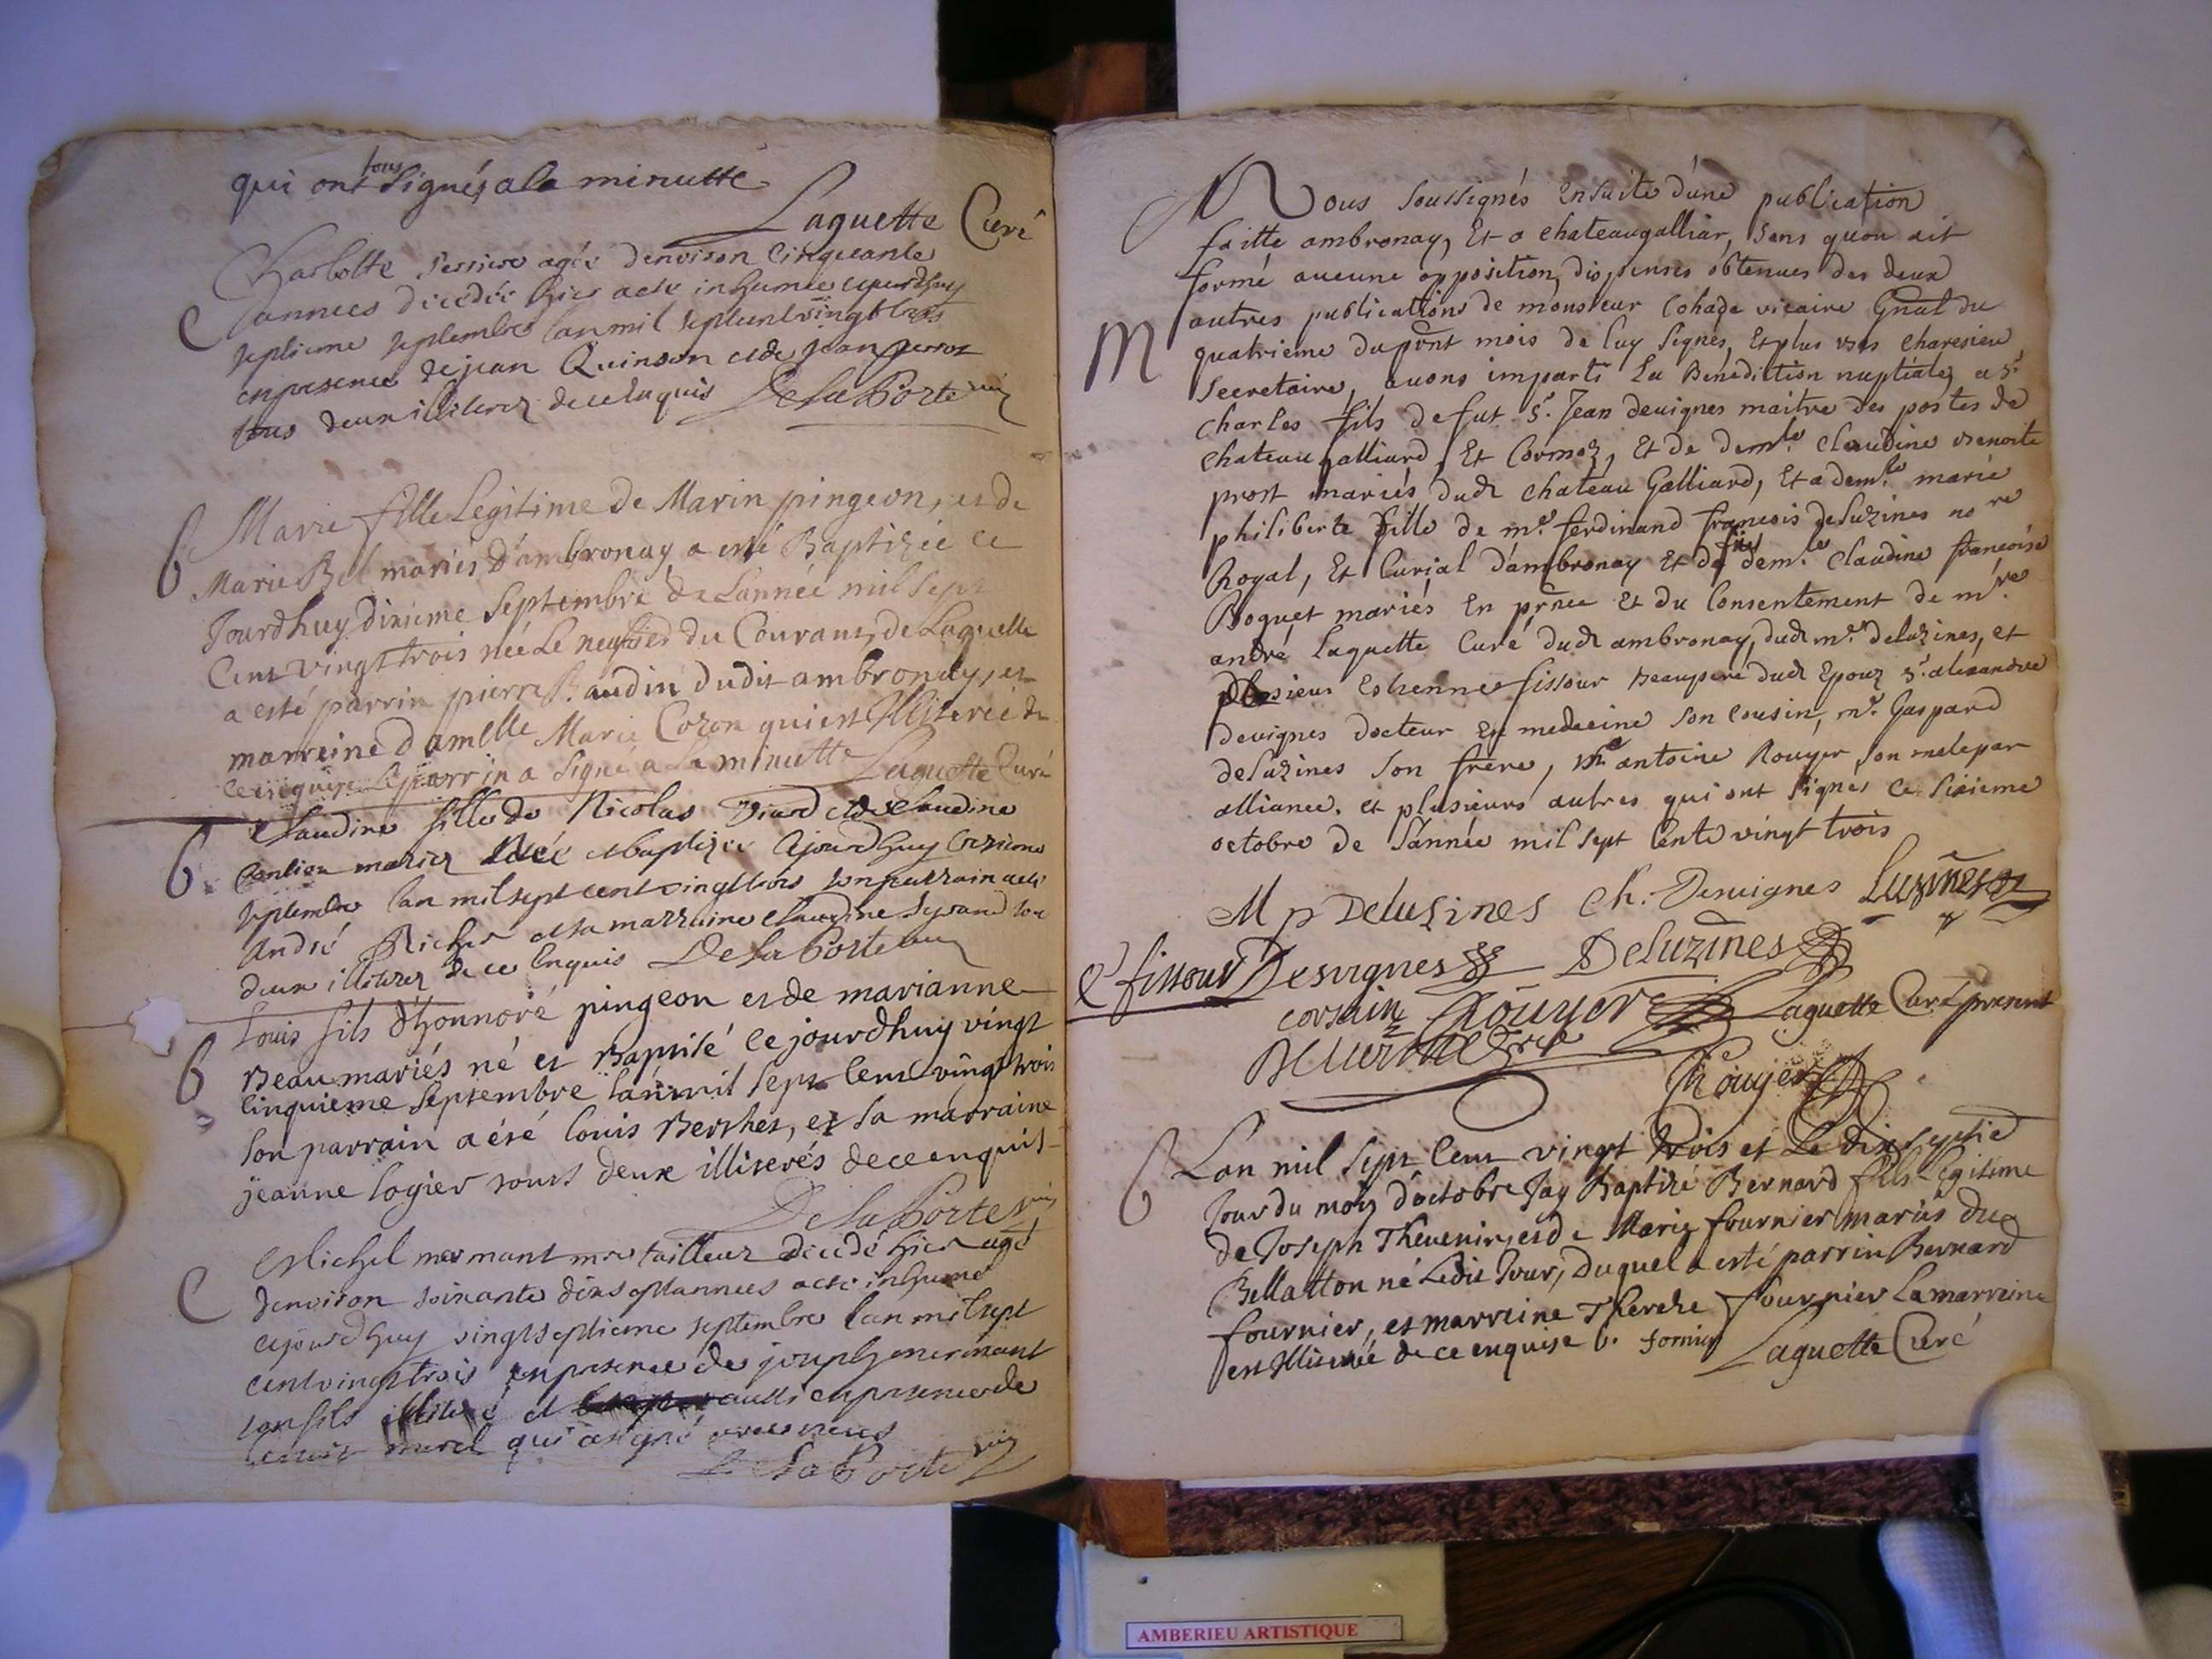 qui ont tous signés a la minutte
Laguette Curé
Charlotte agée denviron cinquante
C annees decedée hier a esté inhumée cejourdhuy
septieme septembre lan mil sept cent vingt trois
en presence de jean Quinson et de jean perrot
tous deux illiterez de ce enquis DelaPorte vic
B Marie fille Legitime de Marin pingeon, et de
Marie Bel mariés D'ambronay a esté Baptizée ce
Jourdhuy dixieme Septembre de Lannée mil sept
Cent vingt trois née Le neuf du Courant, de Laquelle
a esté parrin pierre Baudin dudit ambronay, et
marreine damelle Marie Cozon qui est Illiterée de
ce enquise Le parrin a signé a La minutte Laguette Curé
B. Claudine fille de Nicolas et de Claudine
mariez Née et baptizée cejourdhuy
septembre lan mil sept cent vingt trois son parrain a esté
André Richer et sa marraine Claudine tou
deux illiterez de ce enquis DelaPorte vic
Louis fils d'honnoré pingeon et de marianne
B Beau mariés né et Baptisé ce jourdhuy vingt
cinquieme septembre l'an mil sept cent vingt trois
son parrain a été louis Berthet, et sa marraine
jeanne logier tous deux illiterés de ce enquis
DelaPorte vic
Michel mermant mre tailleur decedé hier agé
C denviron soixante dix sept annees a esté inhumé
cejourdhuy vingt septieme septembre lan mil sept
cent vingt trois en presence de joseph mermant
son fils illiteré et aussi en presence de
morel qui a signé avec nous
DelaPorte vic
Nous soussignés Ensuite d'une publication
faitte ambronay, Et a chateaugalliar, sans quon ait
formé aucune opposition, dispenses obtenues des deux
autres publications de monsieur Cohade vicaire Gnal du
M quatrieme du pnt mois de luy signés, Et plus bas charesieu
secretaire, avons imparti La Benediction nuptiale, a Sr
charles fils de fut Sr. Jean devignes maitre des postes de
chateau galliard, Et Cormoz, Et de demlle. Claudine Benoite
prost mariés dudt chateau Galliard, Et a demlle. marie
philiberte fille de me. ferdinand francois deluzines nore
Royal, Et Curial d'ambronay Et de füe demlle. Claudine francoise
Boquet mariés En prnce Et du Consentement de mre.
andré Laguette Curé dudt ambronay, dudt me. deluzines, et
Estienne fissour Beaupere dudt Epoux Sr. alexandre
devignes docteur En medecine son Cousin, me. Gaspard
deluzines son frere, me antoine Rouyer son oncle par
alliance, et plusieurs autres qui ont signés ce sixieme
octobre de L'année mil sept Cents vingt trois
M p Deluzines Ch. Devignes Luzines
E fissour Desvignes Deluzines
corsain Rouyer Laguette Curé present
Rouyer
B Lan mil sept Cent vingt trois et Le dix septie
Jour du mois d'octobre Jay Baptizé Bernard fils Legitime
de Joseph Thevenin, et de Marie fournier mariés du
Bellatton né Ledit Jour, Duquel a esté parrin Bernard
fournier, et marreine Therese fournier La marreine
est Illiterée de ce enquise b. fornier Laguette Curé
AMBERIEU ARTISTIQUE